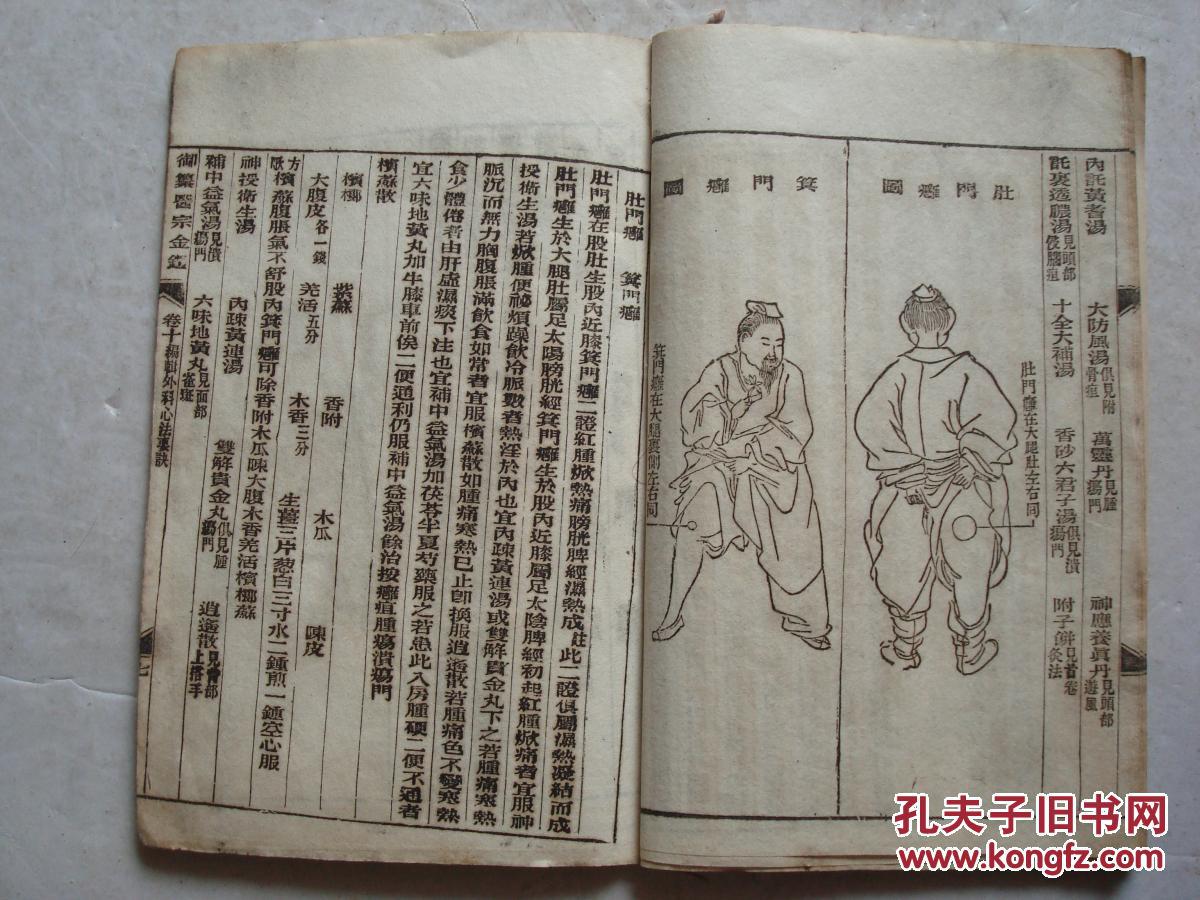 內託黃耆湯 大防風湯俱見附骨疽 萬靈丹見腫瘍門 神應養眞丹見頭部遊風
託裏透膿湯見頭部侵腦疽 十全大補湯 香砂六君子湯俱見潰瘍門 附子餅見首卷灸法
肚門癰圖
肚門癰在大腿肚左右同
箕門癰圖
箕門癰在大腿裏側左右同
肚門癰 箕門癰
肚門癰在股肚生股內近膝箕門癰二證紅腫焮熱痛膀胱脾經濕熱成註此二證俱屬濕熱凝結而成
肚門癰生於大腿肚屬足太陽膀胱經箕門癰生於股內近膝屬足太陰脾經初起紅腫焮痛者宜服神
授衛生湯若焮腫便祕煩躁飲冷脈數者熱淫於內也宜內疎黃連湯或雙解貴金丸下之若腫痛寒熱
脈沉而無力胸腹脹滿飲食如常者宜服檳蘇散如腫痛寒熱已止卽換服逍遙散若腫痛色不變寒熱
食少體倦者由肝虛濕痰下注也宜補中益氣湯加茯苓半夏芍藥服之若患此入房腫硬二便不通者
宜六味地黃丸加牛膝車前俟二便通利仍服補中益氣湯餘治按癰疽腫瘍潰瘍門
檳蘇散
檳榔 紫蘇 香附 木瓜 陳皮
大腹皮各一錢 羌活五分 木香三分 生薑三片葱白三寸水二鍾煎一鍾空心服
方歌檳蘇腹脹氣不舒股內箕門癰可除香附木瓜陳大腹木香羌活檳榔蘇
神授衛生湯 內疎黃連湯 雙解貴金丸俱見腫瘍門 逍遙散見背部上搭手
補中益氣湯見潰瘍門 六味地黃丸見面部雀斑
御纂醫宗金鑑 卷十編輯外科心法要訣 七
孔夫子旧书网
www.kongfz.com